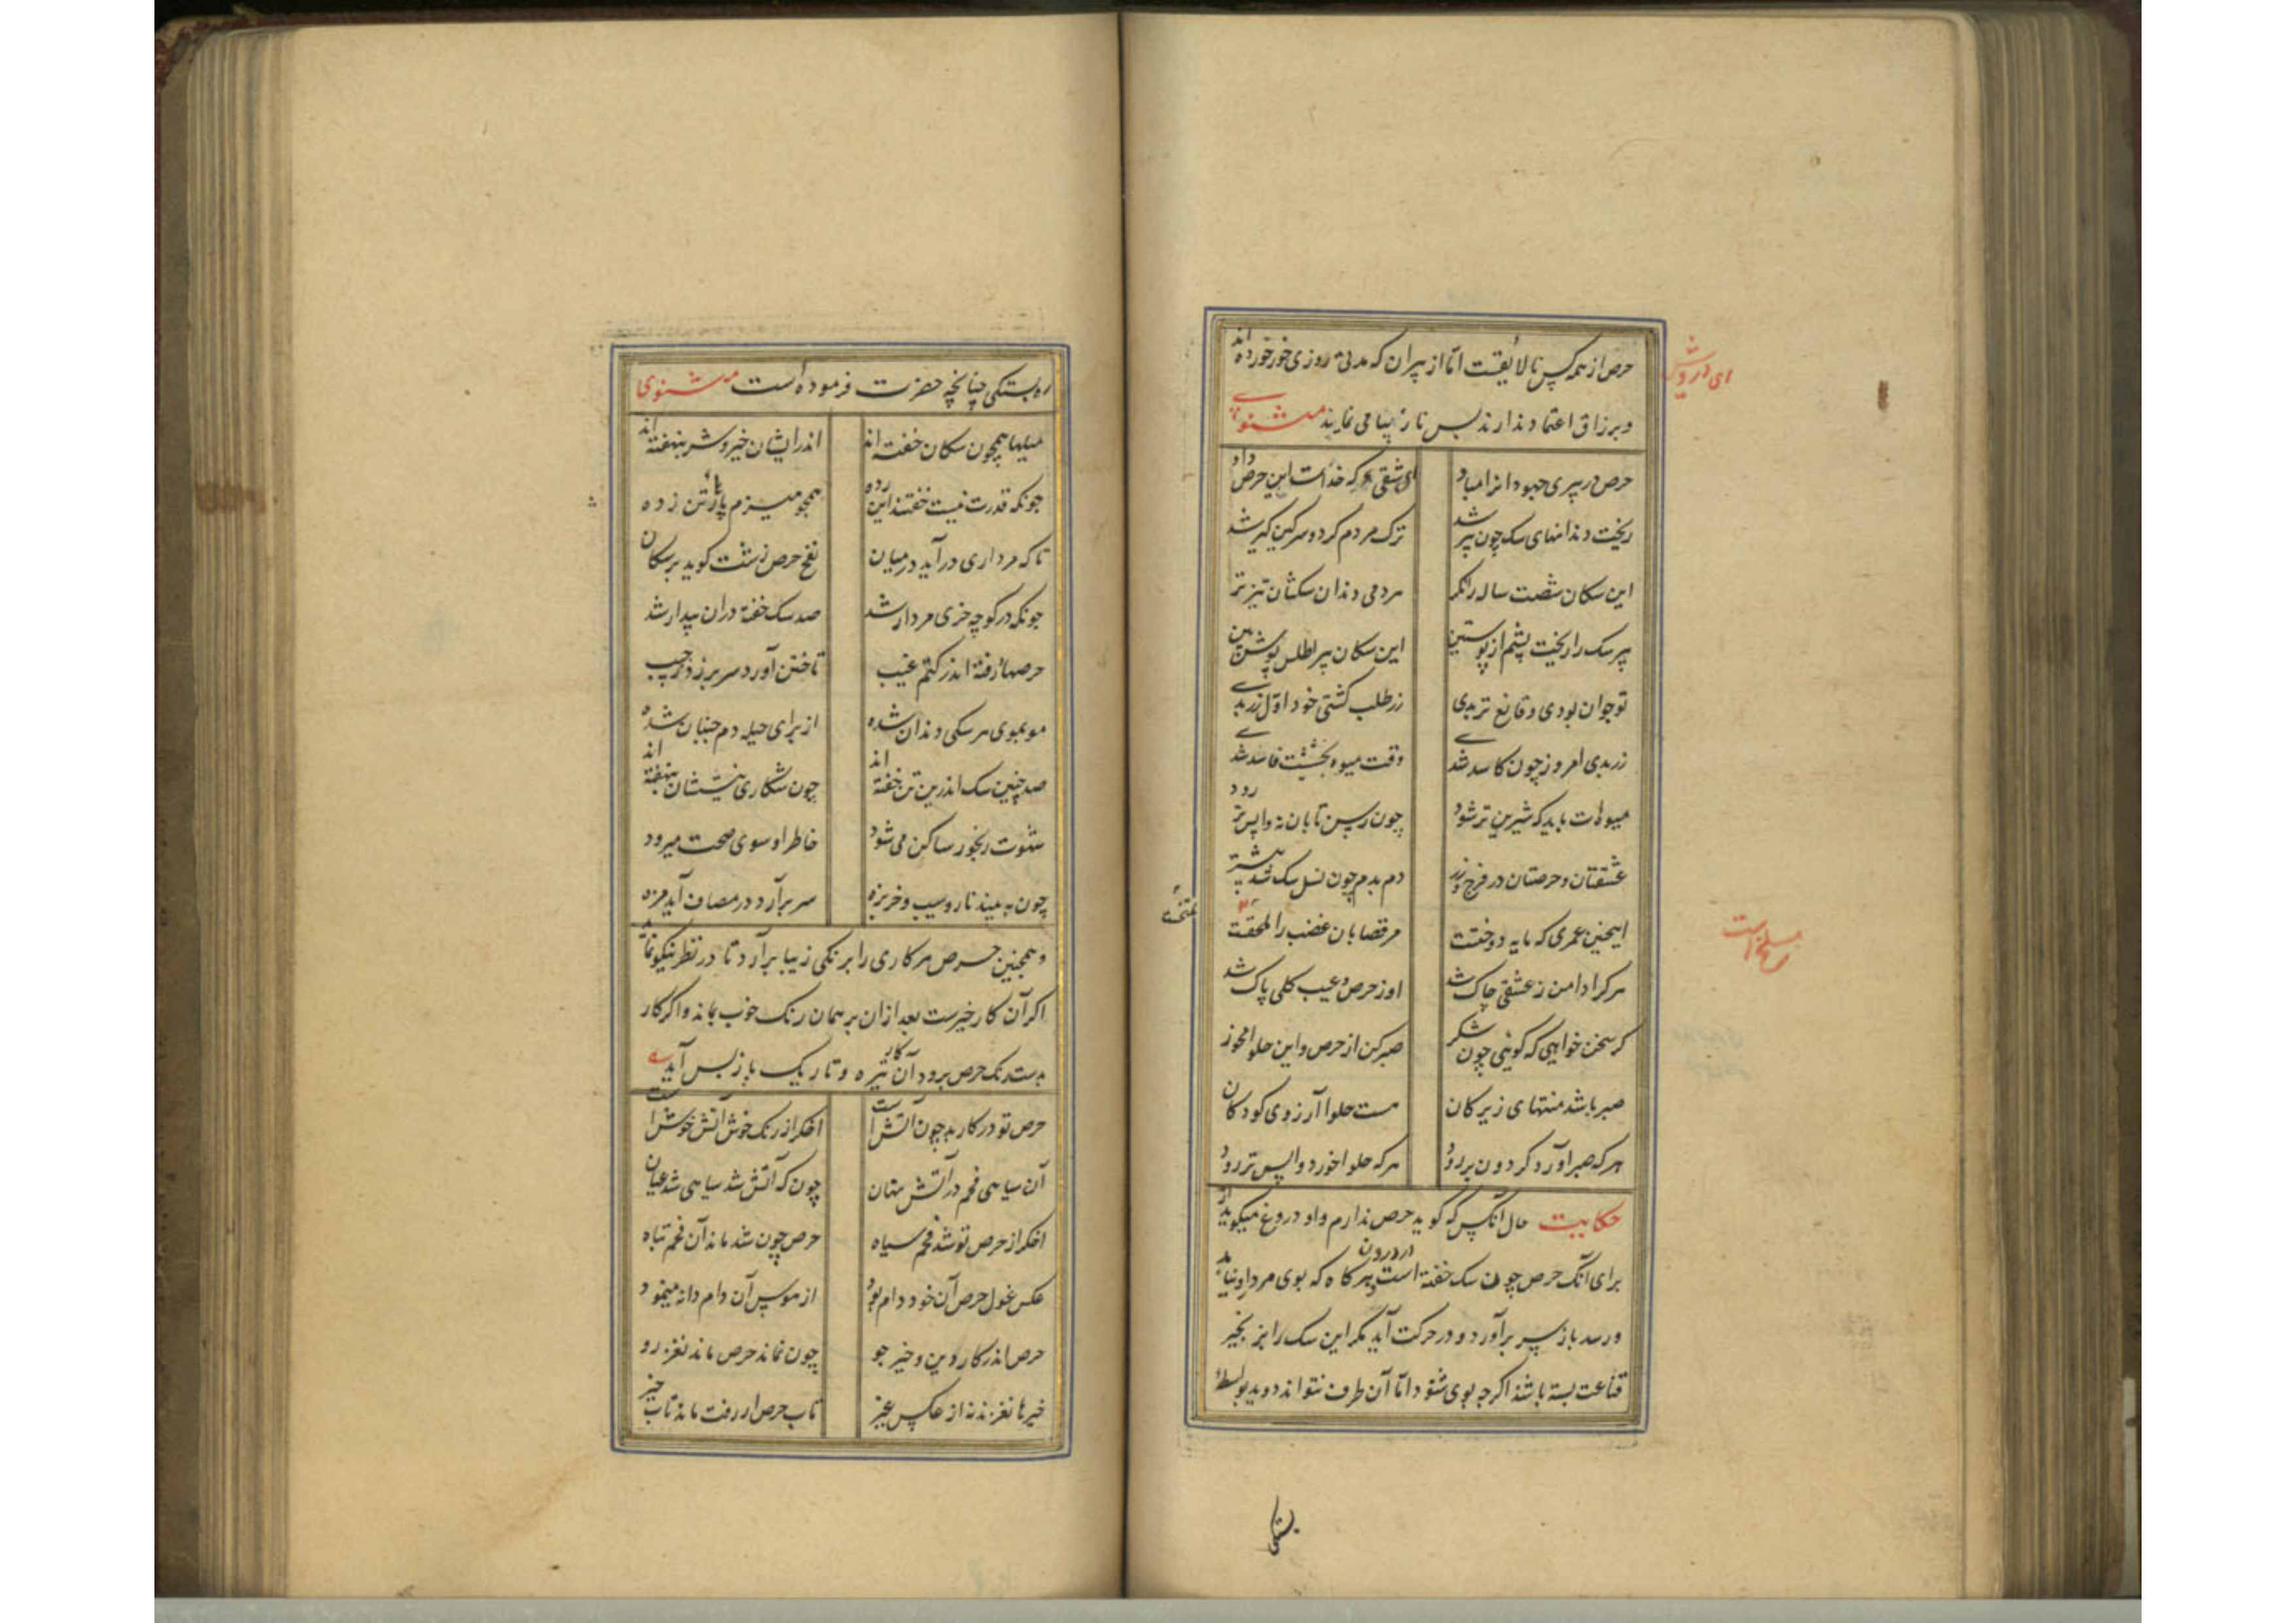 حرص از همه کس نالایقست اما از پیران که مدتی روزی خور خورده اند
و بر رزاق اعتماد ندارند بس نازیبا می نماید مثنوی
حرص در پیری جهودانرا مباد ای شقی که خداست این حرص داد
ریخت دندانهای سک چون پیر شد ترک مردم کرد و سرکین کیر شد
این سکان شصت ساله را نکر هر دمی دندان سکشان تیزتر
پیر سک را ریخت پشم از پوستین این سکان پیر اطلس پوش بین
تو جوان بودی و قانع تر بدی زر طلب کشتی خود اول زر بدی
زر بدی امروز چون کاسد شدی وقت میوه پختنت فاسد شدی
میوه ات باید که شیرین تر شود چون رسن تابان نه واپس تر رود
عشقتان و حرصتان در فرج و زر دم بدم چون نسل سک شد بیشتر
اینچنین عمری که مایه دوختت مر قصابان غضب را
هر کرا دامن ز عشقی چاک شد او ز حرص و عیب کلی پاک شد
کر سخن خواهی که کویی چون شکر صبر کن از حرص و این حلوا مخور
صبر باشد منتهای زیرکان هست حلوا آرزوی کودکان
هر که صبر آورد کردون بر رود هر که حلوا خورد واپس تر رود
حکایت حال آنکس که کوید حرص ندارم و او دروغ میکوید از
برای آنک حرص چون سک خفته است در درون هر کاه که بوی مردار دنیا بد
و رسد باز سر برآورد و در حرکت آید مکر این سک را بزنجیر
قناعت بسته باشد اکرچه بوی شنود اما آن طرف نتواند دوید بواسطهٔ
ای درویش
مسلخ است
بستکی
بستکی چنانچه حضرت فرموده است مثنوی
میلها همچون سکان خفته اند اندر ایشان خیر و شر بنهفته اند
چونکه قدرت نیست خفتند این رده همچو هیزم پاره و تن زده
تا که مرداری درآید در میان نفخ حرص زشت کوید بر سکان
چونکه در کوچه خری مردار شد صد سک خفته دران بیدار شد
حرصها رفته اندر کتم غیب تاختن آورد سر بر زد ز جیب
مو بموی هر سکی دندان شده از برای حیله دم جنبان شده
صد چنین سک اندرین تن خفته اند چون شکاری نیستشان بنهفته اند
شهوت رنجور ساکن می شود خاطر او سوی صحت میرود
چون به بیند نار و سیب و خربزه سر برآرد در مصاف آید مزه
و همچنین حرص هر کاری را برنکی زیبا برآرد تا در نظر نیکو نماید
اکر آن کار خیرست بعد ازان بر همان رنک خوب بماند و اکر کار
بدست رنک حرص برود آن کار تیره و تاریک باز پس آید
حرص تو در کار بد چون آتش است اخکر از رنک خوش آتش خوش است
آن سیاهی فحم در آتش نهان چون که آتش شد سیاهی شد عیان
اخکر از حرص تو شد فحم سیاه حرص چون شد ماند آن فحم تباه
عکس غول حرص آن خود دام بود از هوس آن دام دانه مینمود
حرص اندر کار دین و خیر جو چون نماند حرص ماند نغز رو
خیرها نغزند نه از عکس غیر تاب حرص ار رفت ماند تاب خیر